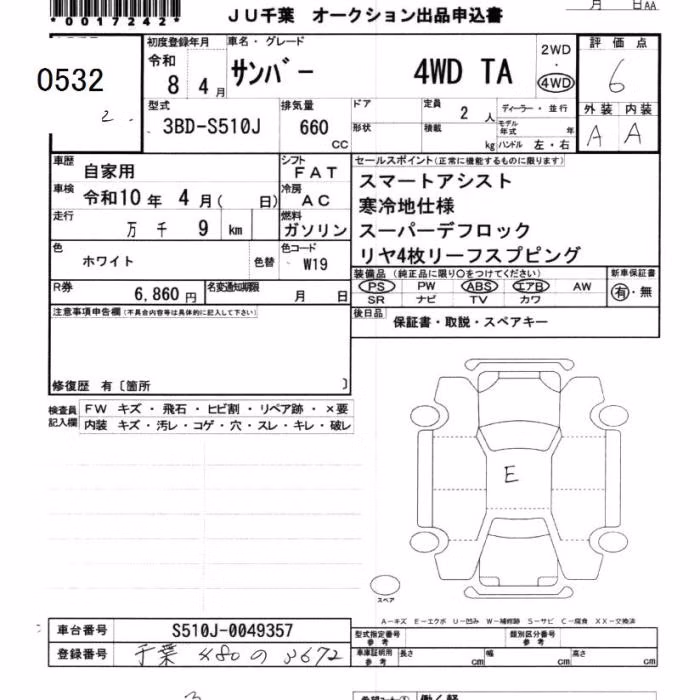 *0017242*
JU千葉 オークション出品申込書
月 日AA
0532
2
初度登録年月
令和
8 4月
車名・グレード
サンバー 4WD TA
2WD
・
4WD
評価点
6
型式
3BD-S510J
排気量
660
CC
ドア
形状
定員
2 人
積載
kg
ディーラー・並行
モデル年式 年
ハンドル 左・右
外装 内装
A A
車歴
自家用
シフト
FAT
車検
令和10年 4月( 日)
冷房
AC
走行
万 千 9 km
燃料
ガソリン
色
ホワイト
色替
色コード
W19
R券
6,860円
名変通知期限
月 日
セールスポイント(正常に機能するものに限ります)
スマートアシスト
寒冷地仕様
スーパーデフロック
リヤ4枚リーフスプピング
装備品 (純正品に限り○をつけてください)
PS PW ABS エアB AW
SR ナビ TV カワ
新車保証書
有・無
後日品
保証書・取説・スペアキー
注意事項申告欄(不具合内容等は具体的に記入して下さい)
修復歴 有〔箇所 〕
検査員
記入欄
FW キズ・飛石・ヒビ割・リペア跡・×要
内装 キズ・汚レ・コゲ・穴・スレ・キレ・破レ
E
スペア
A−キズ E−エクボ U−凹み W−補修跡 S−サビ C−腐食 XX−交換済
車台番号
S510J-0049357
登録番号
千葉 480 の 3672
型式指定番号
参考
類別区分番号
参考
車庫証明用
参考
長さ cm
幅 cm
高さ cm